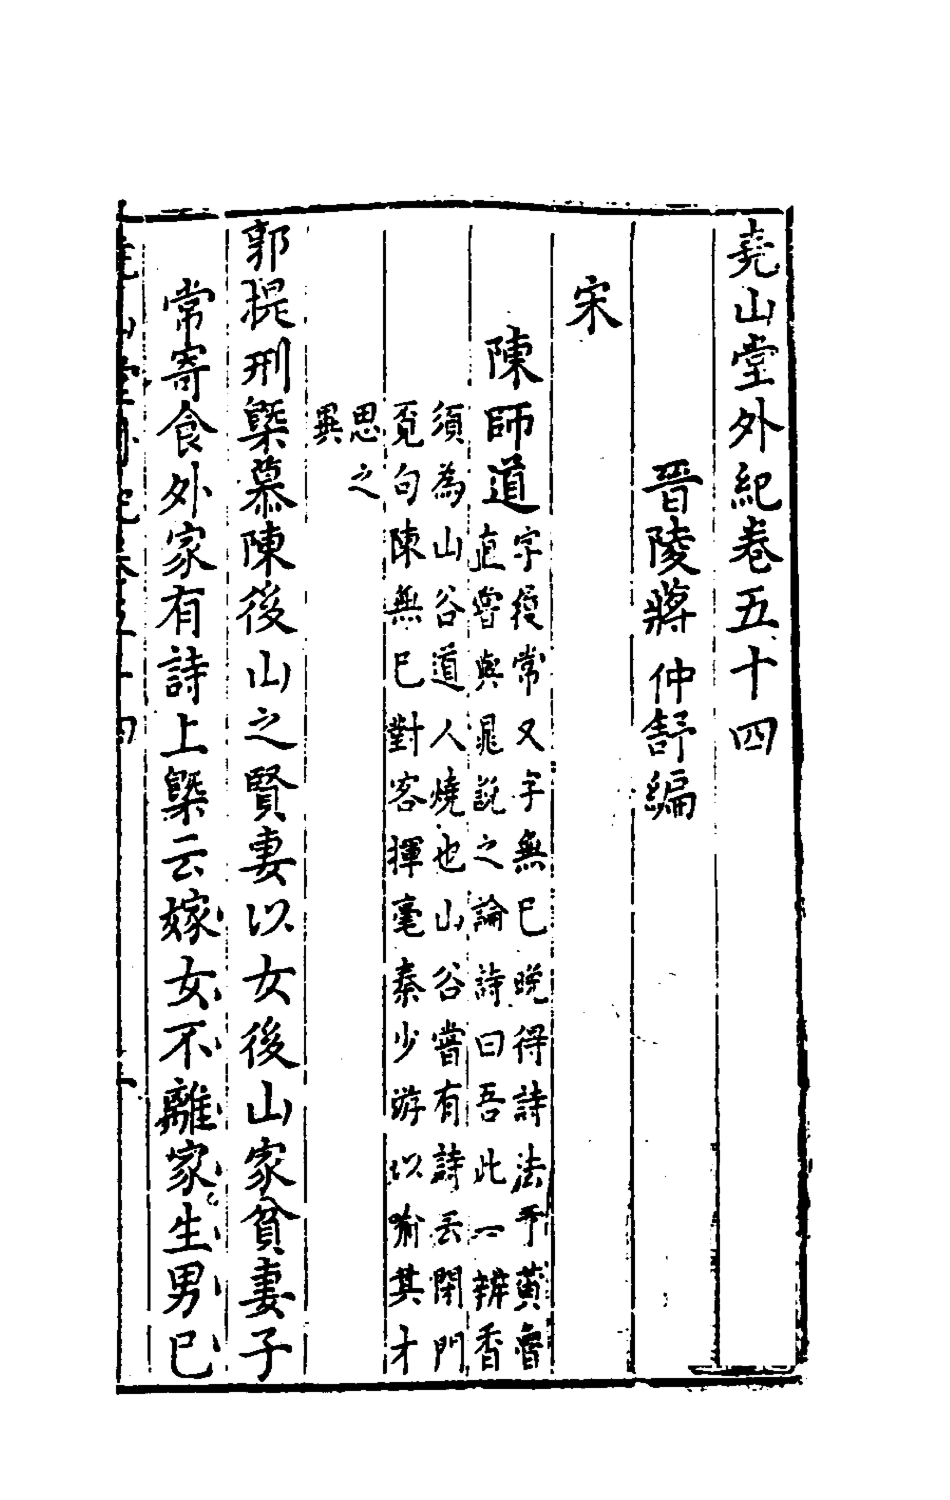 堯山堂外紀卷五十四
晉陵蔣仲舒編
宋
陳師道
字履常又字無巳晚得詩法于黃魯
直嘗與晁說之論詩曰吾此一辨香
須為山谷道人燒也山谷嘗有詩云閉門
覓句陳無巳對客揮毫秦少游以喻其才
思之
異
郭提刑槩慕陳後山之賢妻以女後山家貧妻子
常寄食外家有詩上槩云嫁女不離家生男巳